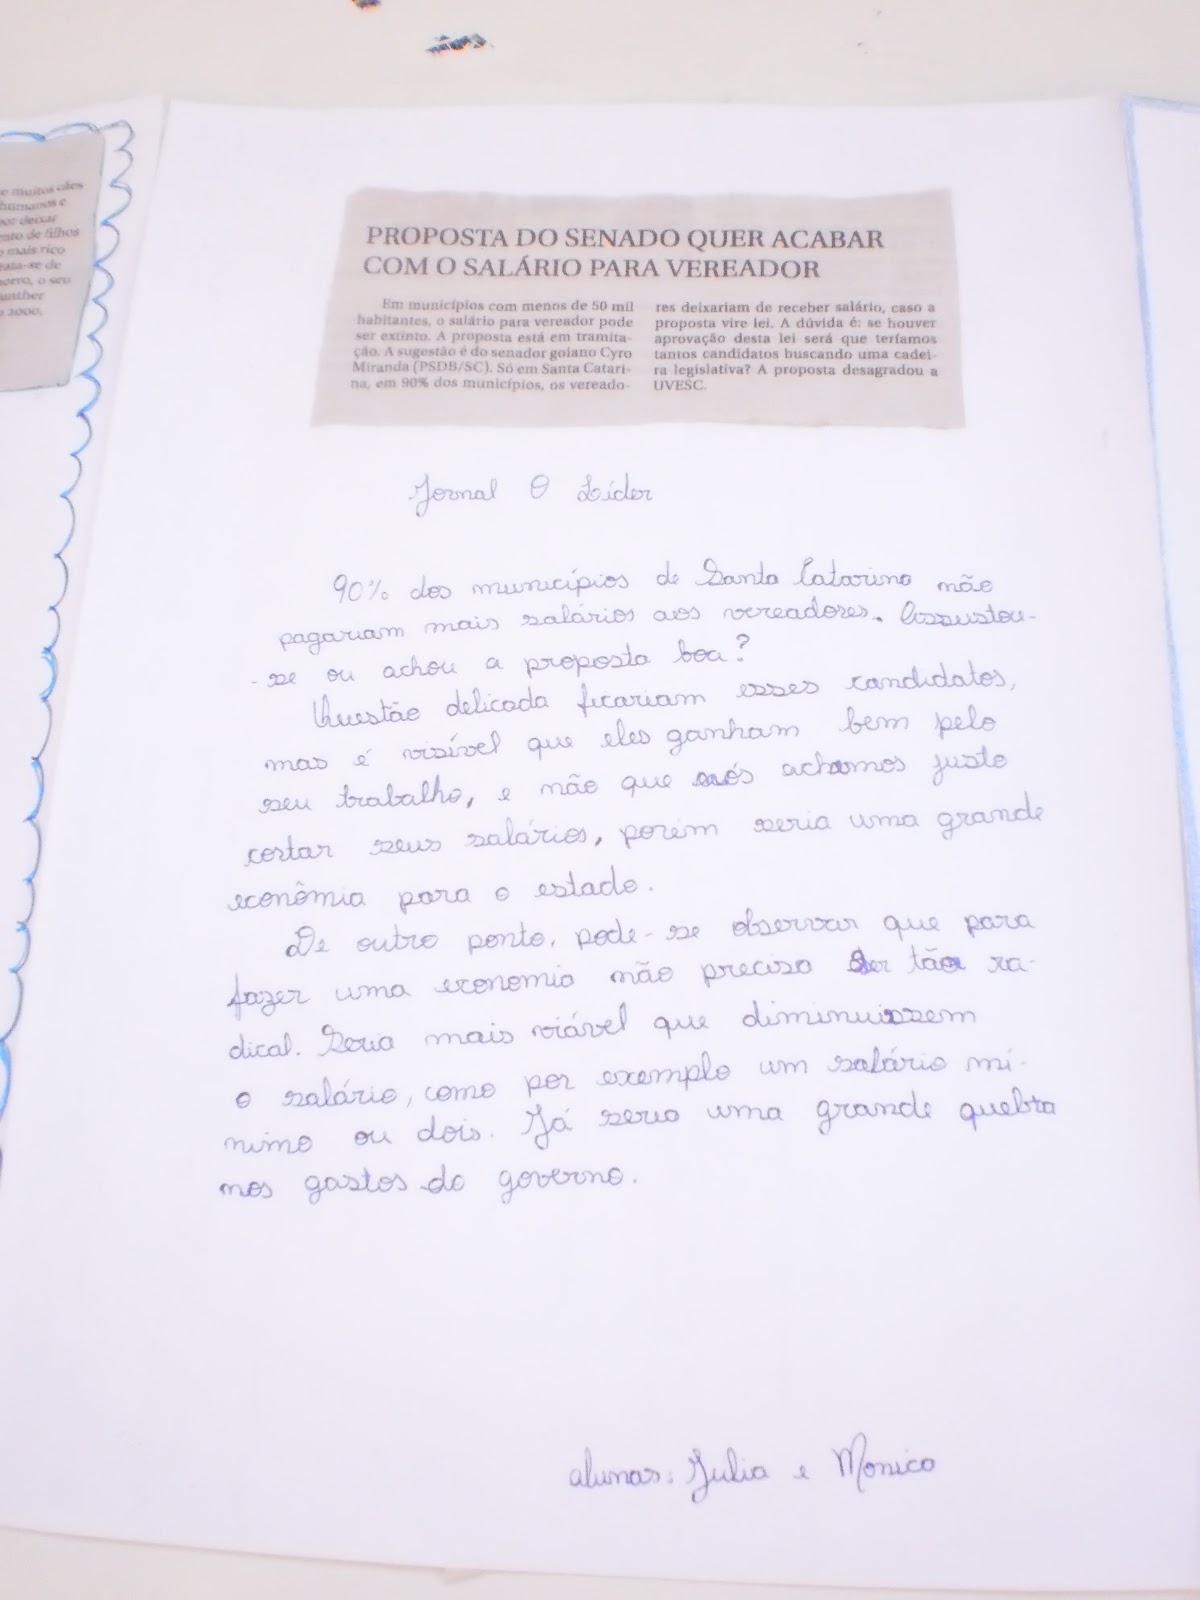 e muitos cães
humanos e
por deixar
ento de filhos
o mais rico
rata-se de
orro, o seu
unther
o 2000,
PROPOSTA DO SENADO QUER ACABAR
COM O SALÁRIO PARA VEREADOR
Em municípios com menos de 50 mil
habitantes, o salário para vereador pode
ser extinto. A proposta está em tramita-
ção. A sugestão é do senador goiano Cyro
Miranda (PSDB/SC). Só em Santa Catari-
na, em 90% dos municípios, os vereado-
res deixariam de receber salário, caso a
proposta vire lei. A dúvida é: se houver
aprovação desta lei será que teríamos
tantos candidatos buscando uma cadei-
ra legislativa? A proposta desagradou a
UVESC.
Jornal O Líder
90% dos municípios de Santa Catarina não
pagariam mais salários aos vereadores. Assustou-
-se ou achou a proposta boa?
Questão delicada ficariam esses candidatos,
mas é visível que eles ganham bem pelo
seu trabalho, e não que nós achamos justo
cortar seus salários, porém seria uma grande
econômia para o estado.
De outro ponto, pode-se observar que para
fazer uma economia não precisa ser tão ra-
dical. Seria mais viável que diminuissem
o salário, como por exemplo um salário mí-
nimo ou dois. Já seria uma grande quebra
nos gastos do governo.
alunas: Julia e Monica